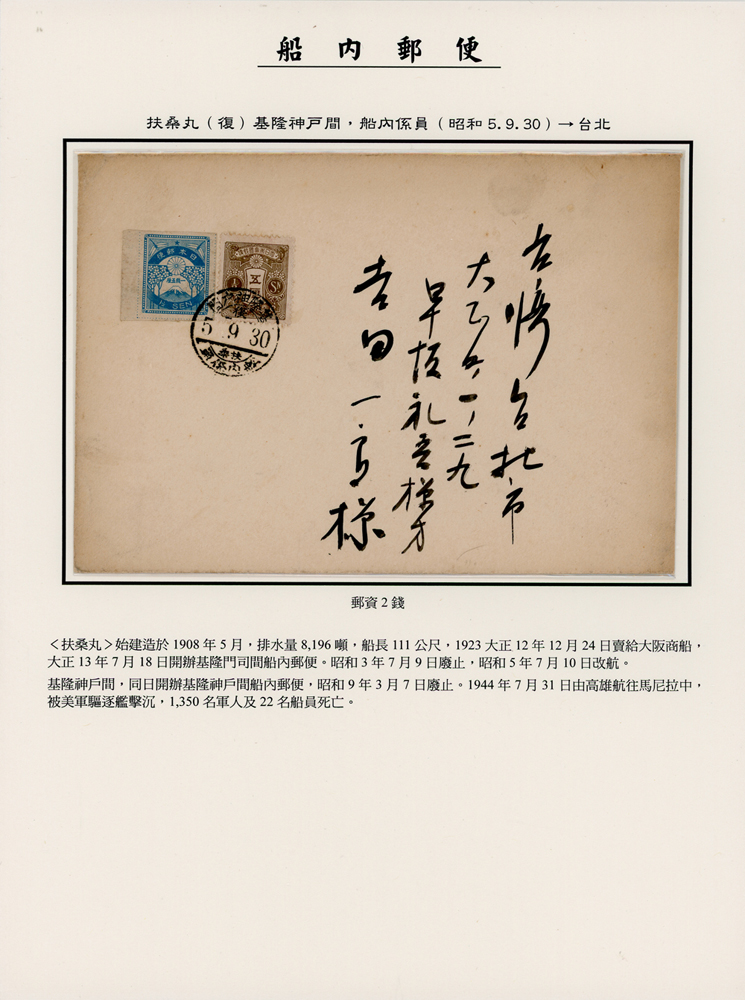 船內郵便
扶桑丸（復）基隆神戸間，船內係員（昭和 5.9.30）→台北
日本郵便
1½ SEN
五
½ Sn
5.9.30
扶桑
船內係員
台湾台北市
大正町一ノ二九
早坂礼吾様方
吉田一郎様
郵資 2 錢
＜扶桑丸＞始建造於 1908 年 5 月，排水量 8,196 噸，船長 111 公尺，1923 大正 12 年 12 月 24 日賣給大阪商船，
大正 13 年 7 月 18 日開辦基隆門司間船內郵便。昭和 3 年 7 月 9 日廢止，昭和 5 年 7 月 10 日改航。
基隆神戶間，同日開辦基隆神戶間船內郵便，昭和 9 年 3 月 7 日廢止。1944 年 7 月 31 日由高雄航往馬尼拉中，
被美軍驅逐艦擊沉，1,350 名軍人及 22 名船員死亡。